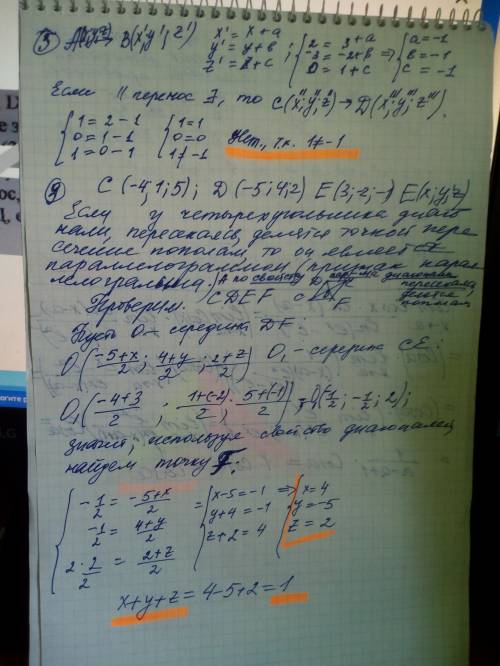 ⑤ A(x;y;z) → B(x';y';z') x' = x+a y' = y+b z' = z+c ; { 2 = 3+a -3 = -2+b 0 = 1+c ⇒ { a = -1 b = -1 c = -1
Если ∥ перенос, то C(x'';y'';z'') → D(x''';y''';z''').
{ 1 = 2-1 { 1 = 1
0 = 1-1 0 = 0
1 = 0-1 1 ≠ -1 Нет, т.к. 1≠-1
⑨ C(-4;1;5); D(-5;4;2) E(3;-2;-1) F(x;y;z)
Если у четырехугольника диаго
нали, пересекаясь, делятся точкой пере
сечения пополам, то он является
параллелограммом, признак парал
лелограмма. А по свойству диагонали
Проверим. CDEF C D E F пересекаясь делятся пополам
Пусть O – середина DF:
O(-5+x/2; 4+y/2; 2+z/2) O₁ – середина CE:
O₁(-4+3/2; 1+(-2)/2; 5+(-1)/2) = O₁(-1/2; -1/2; 2);
значит, используя свойство диагоналей,
найдем точку F:
{ -1/2 = -5+x/2 = { x-5 = -1 ⇒ { x = 4
-1/2 = 4+y/2 y+4 = -1 y = -5
2·2/2 = 2+z/2 z+2 = 4 z = 2
x+y+z = 4-5+2 = 1